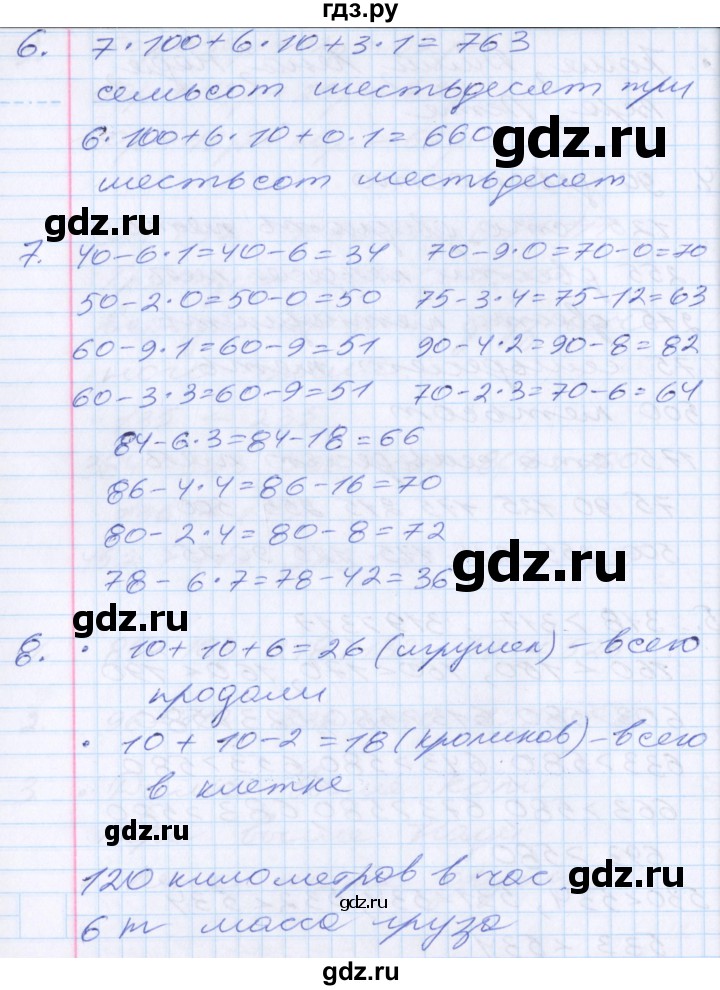 гдз.ру
6. 7·100+6·10+3·1=763
семьсот шестьдесят три
6·100+6·10+0·1=660
gdz.ru
шестьсот шестьдесят
gdz.ru
7. 40-6·1=40-6=34 70-9·0=70-0=70
50-2·0=50-0=50 75-3·4=75-12=63
60-9·1=60-9=51 90-4·2=90-8=82
60-3·3=60-9=51 70-2·3=70-6=64
84-6·3=84-18=66
86-4·4=86-16=70
80-2·4=80-8=72
gdz.ru
78-6·7=78-42=36
gdz.ru
8. · 10+10+6=26 (игрушек) - всего
продали
· 10+10-2=18 (кроликов) - всего
в клетке
gdz.ru
120 километров в час
gdz.ru
gdz.ru
6 т масса груза
gdz.ru